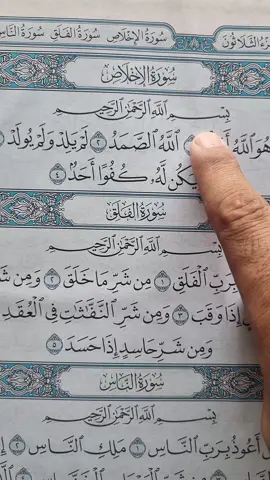 سُورَةُ الإِخْلَاصِ سُورَةُ الفَلَقِ سُورَةُ النَّاسِ
الثَّلَاثُونَ
سُورَةُ الإِخْلَاصِ
بِسْمِ اللَّهِ الرَّحْمَٰنِ الرَّحِيمِ
هُوَ اللَّهُ ۝ اللَّهُ الصَّمَدُ ۝٢ لَمْ يَلِدْ وَلَمْ يُولَدْ
يَكُن لَّهُۥ كُفُوًا أَحَدٌۢ ۝٤
سُورَةُ الفَلَقِ
بِسْمِ اللَّهِ الرَّحْمَٰنِ الرَّحِيمِ
بِرَبِّ الْفَلَقِ ۝١ مِن شَرِّ مَا خَلَقَ ۝٢ وَمِن
إِذَا وَقَبَ ۝٣ وَمِن شَرِّ النَّفَّٰثَٰتِ فِي الْعُقَدِ
وَمِن شَرِّ حَاسِدٍ إِذَا حَسَدَ ۝٥
سُورَةُ النَّاسِ
بِسْمِ اللَّهِ الرَّحْمَٰنِ الرَّحِيمِ
أَعُوذُ بِرَبِّ النَّاسِ ۝١ مَلِكِ النَّاسِ ۝٢